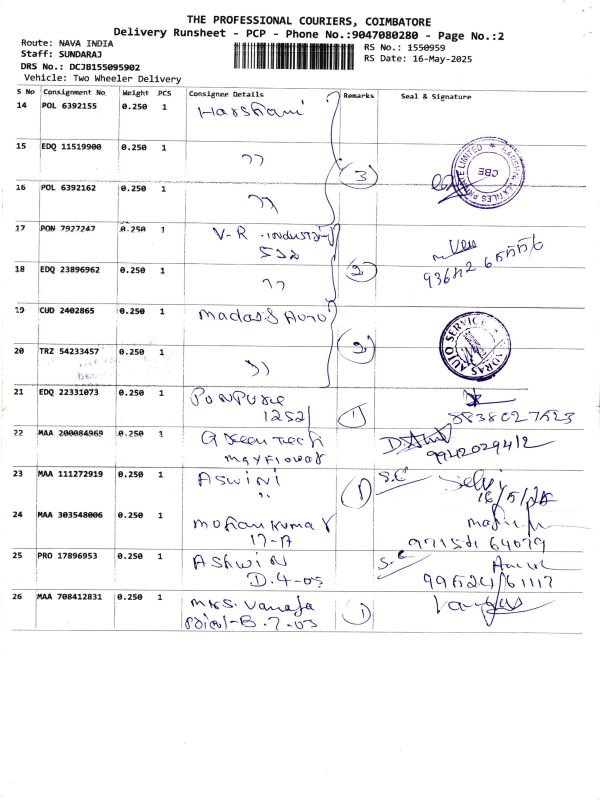 THE PROFESSIONAL COURIERS, COIMBATORE
Delivery Runsheet - PCP - Phone No.:9047080280 - Page No.:2
Route: NAVA INDIA
RS No.: 1550959
Staff: SUNDARAJ
RS Date: 16-May-2025
DRS No.: DCJB155095902
Vehicle: Two Wheeler Delivery
S No Consignment No Weight PCS Consignee Details Remarks Seal & Signature
14 POL 6392155 0.250 1 Harshani
15 EDQ 11519900 0.250 1 ,,
3
PRIVATE LIMITED ★
CBE
16 POL 6392162 0.250 1 ,,
17 PON 7927247 0.250 1 V-R. industry
532
18 EDQ 23896962 0.250 1 ,, 2
19 CUD 2402865 0.250 1 Madass Auto
20 TRZ 54233457 0.250 1 ,, 2
MADRAS AUTO SERVICE
21 EDQ 22331073 0.250 1 PONPURE 1
1252/ 8838027523
22 MAA 200084969 0.250 1 Green Tech
mayflower 9942029412
23 MAA 111272919 0.250 1 ASWINI 1 S.C Selvi
,, 16/5/25
24 MAA 303548006 0.250 1 mohan Kumar
17-A
25 PRO 17896953 0.250 1 ASHWIN S.C
D.4-05
26 MAA 708412831 0.250 1 mrs. Vanaja 1
B.7-03